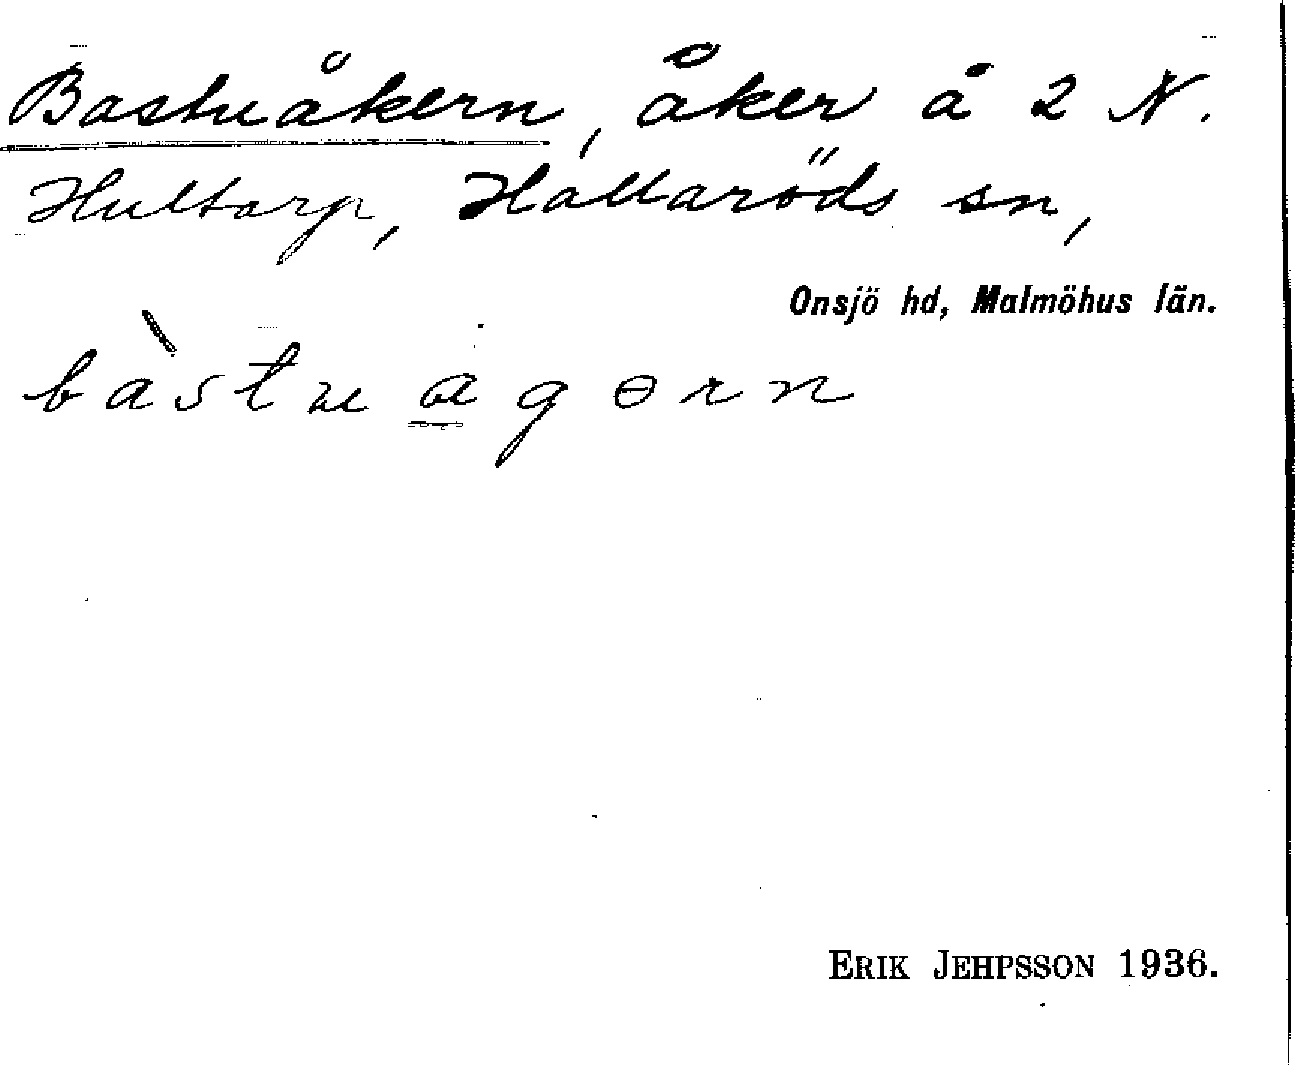 Bastuåkern, åker å 2 N.
Hultarp, Hallaröds sn,
Onsjö hd, Malmöhus län.
bàstu a g ə r n
ERIK JEHPSSON 1936.